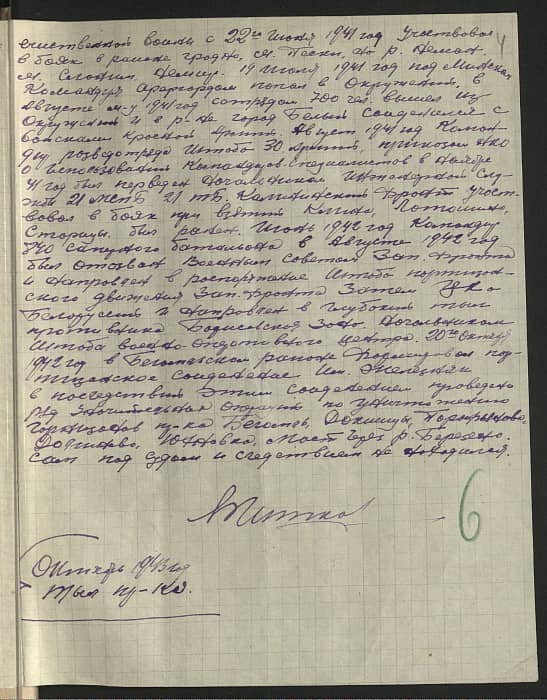 ечественной воины с 22го Июня 1941 год Участвовал
в боях в районе гродно, м. Пески, по р. Неман.
м. Слоним, Немир. 19 Июля 1941 год под Минском
Командуя Арергордом попал в Окружения. в
Августе м-ц 1941 год сотрядом 700 чел. вышел из
Окружения и в р-не город Белый Соединелся с
войсками Красной Армии. Август 1941 год Коман-
дир розведотряда Штаба 30 Армии, приказом НКО
о использовании Командиров специалистов в Ноябре
41 год был переведен Начальником Инженерной Слу-
жбы 21 ТБ, Калининский Фронт Участ-
вовал в боях при взятии Клина, Лотошино,
Старицы. был ранен. Июнь 1942 год Командир
840 саперного батальона в Августе 1942 год
был отозван Военным Советом Зап. Фронта
и направлен в распоряжение Штаба партизан-
ского движения Зап. Фронта Затем ЦК
Белоруссии и направлен в глубокий тыл
противника Борисовская Зона. Начальником
Штаба военно-оперативного центра. 20го Октября
1942 год в Бегомльском районе Формировал пар-
тизанское Соединение Им. Железняк
в последствии Этим соединением проведено
ряд Значительных Операций по уничтожению
Гарнизонов пр-ка Бегомль, Докшицы, Парафьяново,
Долгиново, Юхновка, Мост через р. Березено.
Сам под судом и следствием не находился.
6
Октябрь 1943 год
Тыл пр-ка.